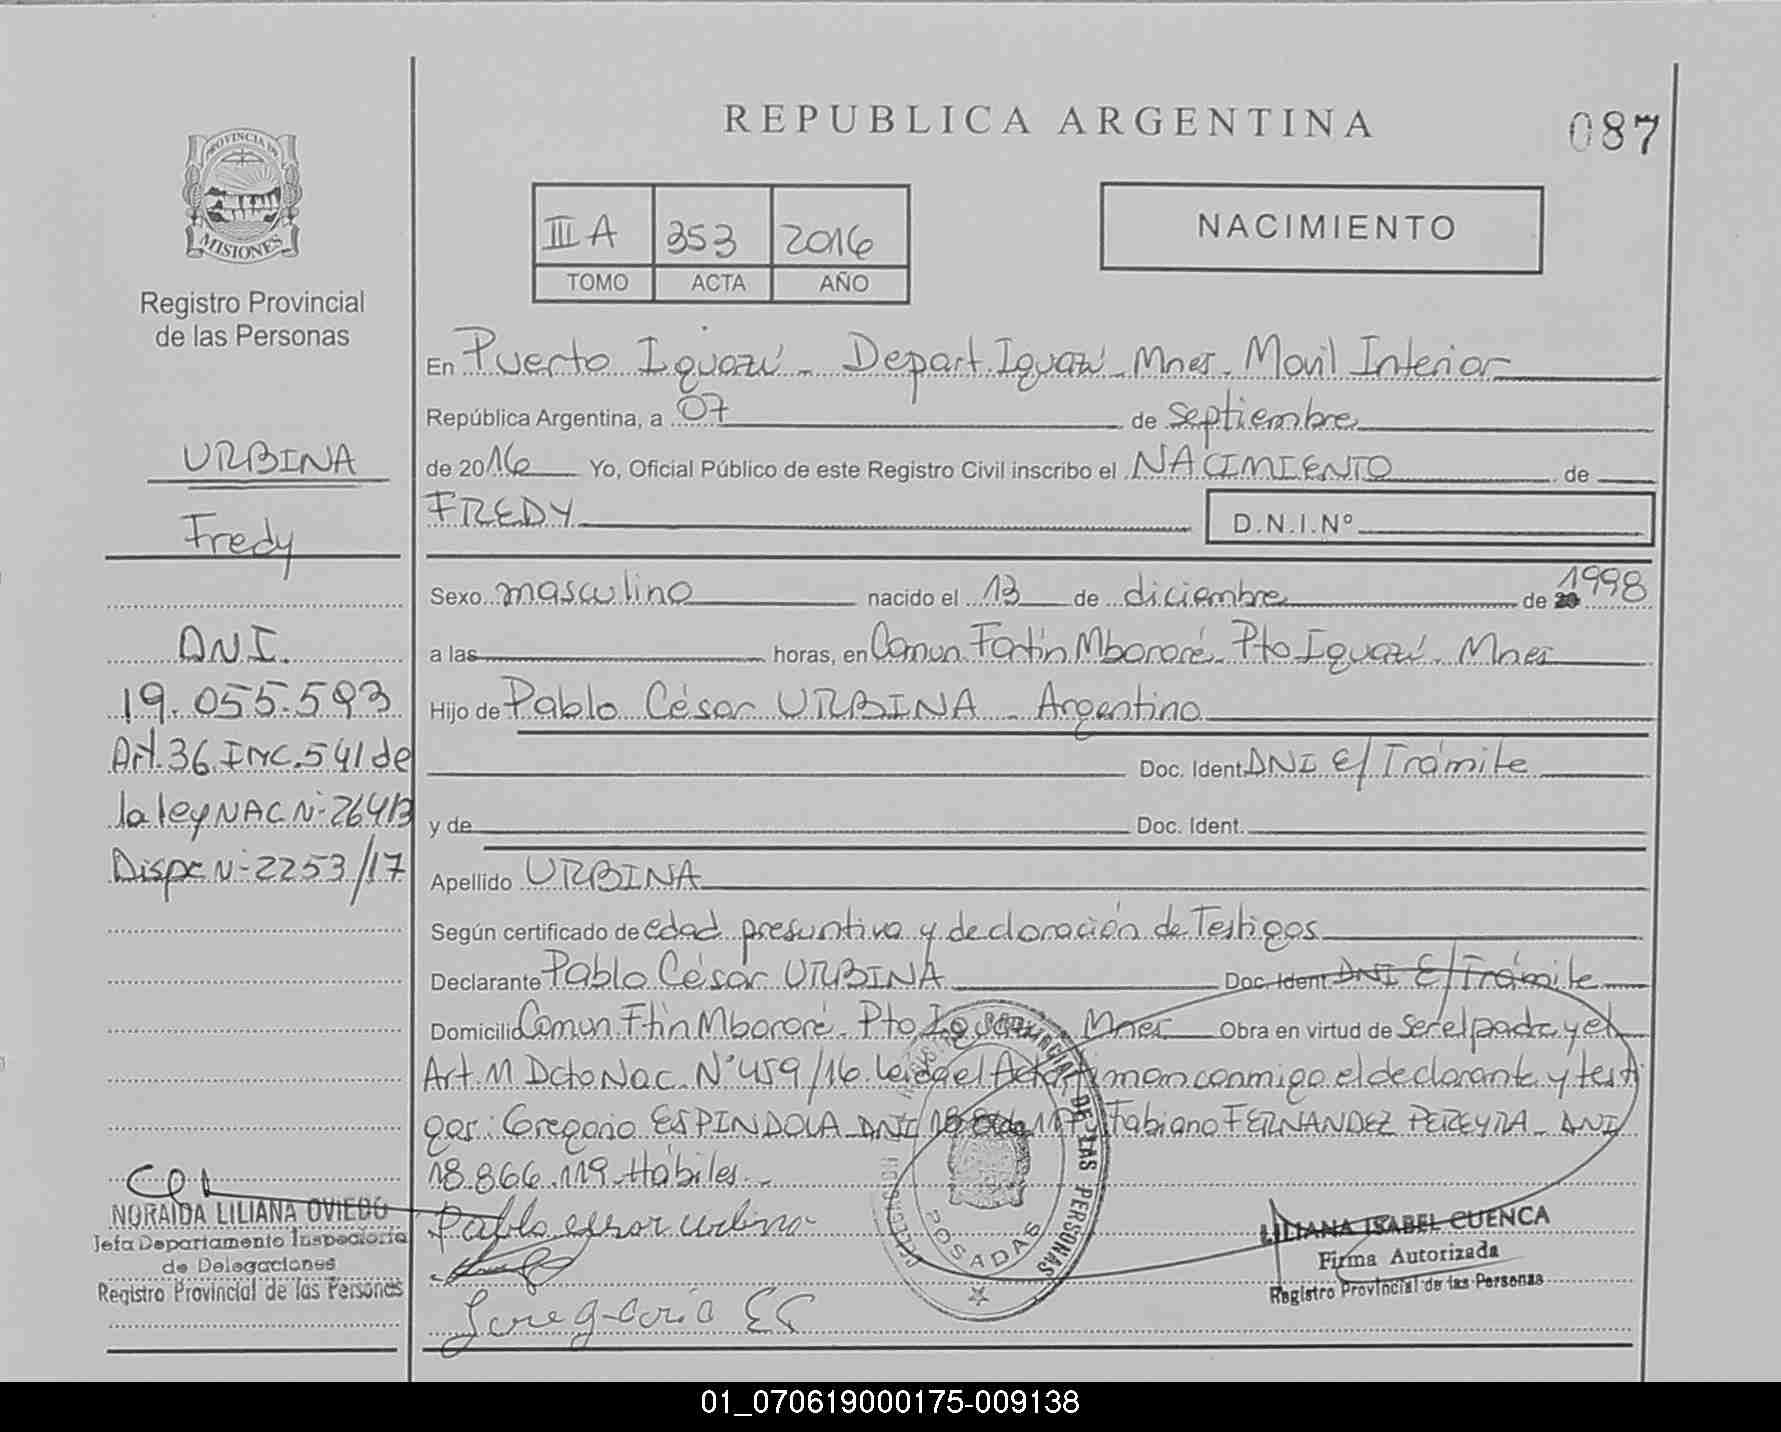 REPUBLICA ARGENTINA
087
PROVINCIA DE
MISIONES
Registro Provincial
de las Personas
III A 353 2016
TOMO ACTA AÑO
NACIMIENTO
En Puerto Iguazú - Depart. Iguazú - Mnes. Movil Interior
República Argentina, a 07 de septiembre
de 2016 Yo, Oficial Público de este Registro Civil inscribo el NACIMIENTO de
FREDY D.N.I.Nº
Sexo masculino nacido el 13 de diciembre de 20 1998
a las horas, en Comun. Fortín Mbororé - Pto Iguazú - Mnes
Hijo de Pablo César URBINA - Argentino
Doc. Ident. DNI E/ Trámite
y de Doc. Ident.
Apellido URBINA
Según certificado de edad presuntiva y declaración de Testigos
Declarante Pablo César URBINA Doc. Ident DNI E/ Trámite
Domicilio Comun. Ftín Mbororé - Pto Mnes Obra en virtud de ser el padre y el
Art. M Dcto Nac. N° 459/16 Leída el Acta man conmigo el declarante y testi
gos: Gregorio ESPINDOLA DNI Fabiano FERNANDEZ PEREYRA - DNI
18.866.119 Hábiles. -
Pablo cesar urbina
URBINA
Fredy
DNI.
19.055.593
Art. 36 INC. 541 de
la ley NAC N° 26413
Dispc N° 2253/17
NORAIDA LILIANA OVIEDO
Jefa Departamento Inspectoria
de Delegaciones
Registro Provincial de las Personas
PROVINCIAL DE LAS PERSONAS
POSADAS
LILIANA ISABEL CUENCA
Firma Autorizada
Registro Provincial de las Personas
01_070619000175-009138